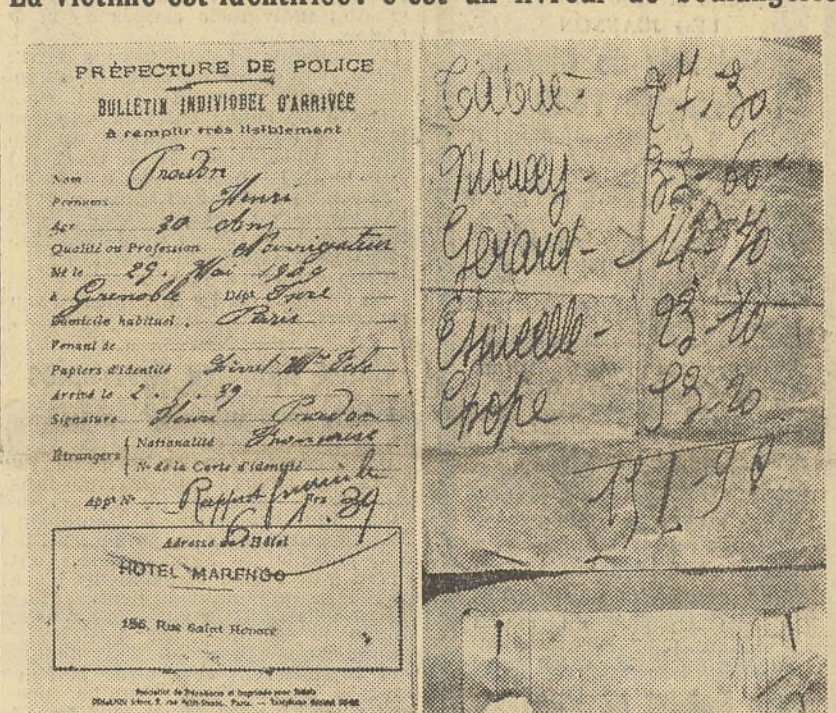 La victime est identifiée: c'est un livreur de boulangerie
PRÉFECTURE DE POLICE
BULLETIN INDIVIDUEL D'ARRIVÉE
à remplir très lisiblement
Nom Proudon
Prénoms Henri
Age 30 Ans
Qualité ou Profession Navrigateur
Né le 29. Mai 1909
à Grenoble Dépt
Domicile habituel. Paris
Venant de
Papiers d'identité Livret
Arrivé le 2. 1. 39
Signature Henri Proudon
Étrangers Nationalité
No de la Carte d'identité
Appt No
39
Adresse de l'Hôtel
HOTEL MARENGO
156, Rue Saint Honoré
Tabac - 27.30
Moucey - 33-60
Gérard - 14-70
23-10
53-20
151-90